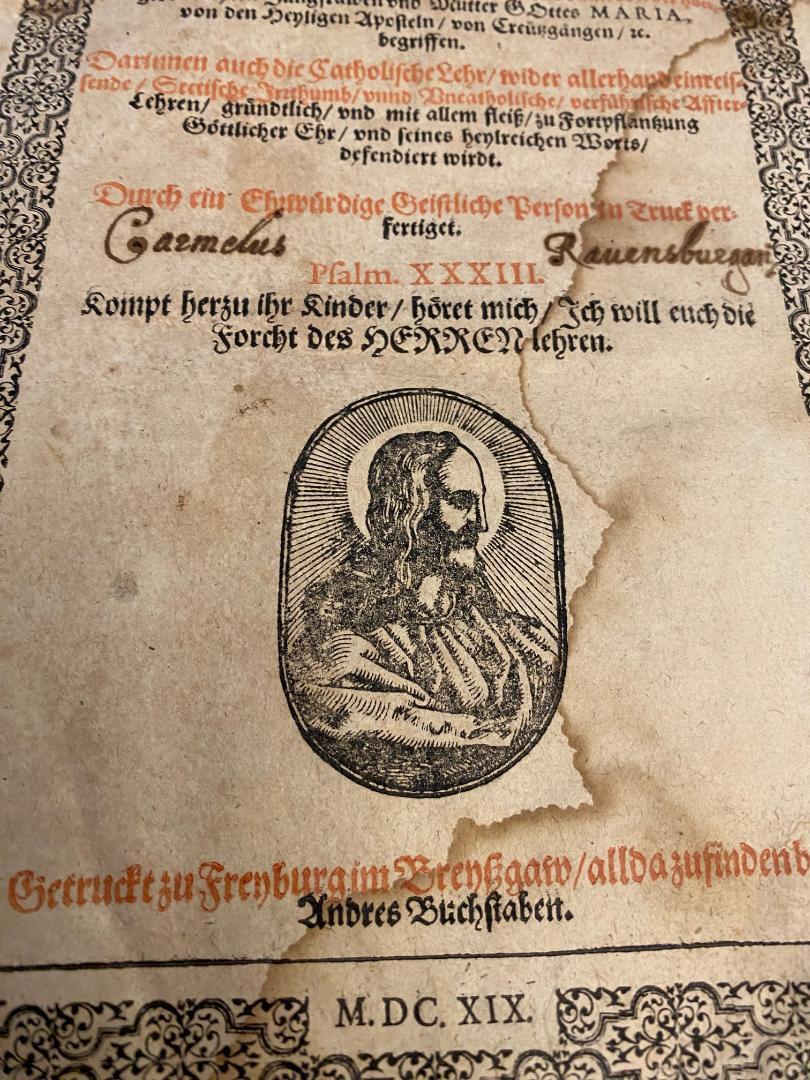 Jungfrawen vnd Mutter GOttes MARIA,
von den Heyligen Aposteln/ von Creützgängen/ ꝛc.
begriffen.
Darinnen auch die Catholische Lehr/ wider allerhand einreis-
sende/ Sectische Irrthumb/ vnnd Vncatholische/ verführische Affter-
Lehren/ gründtlich/ vnd mit allem fleiß/ zu Fortpflantzung
Göttlicher Ehr/ vnd seines heylreichen Worts/
defendiert wirdt.
Durch ein Ehrwürdige Geistliche Person in Truck ver-
fertiget.
Carmelus Rauensburgan9
Psalm. XXXIII.
Kompt herzu ihr Kinder/ höret mich/ Ich will euch die
Forcht des HERREN lehren.
Getruckt zu Freyburg im Breyßgaw/ allda zufinden b
Andres Buchstaben.
M. DC. XIX.